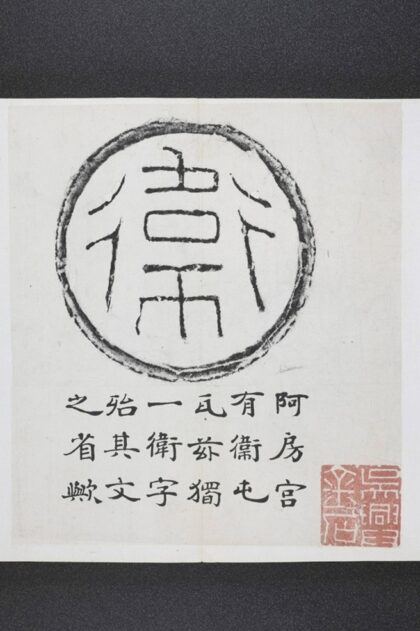 衛
阿房宮
有衛屯
瓦茲獨
一衛字
殆其文
之省歟